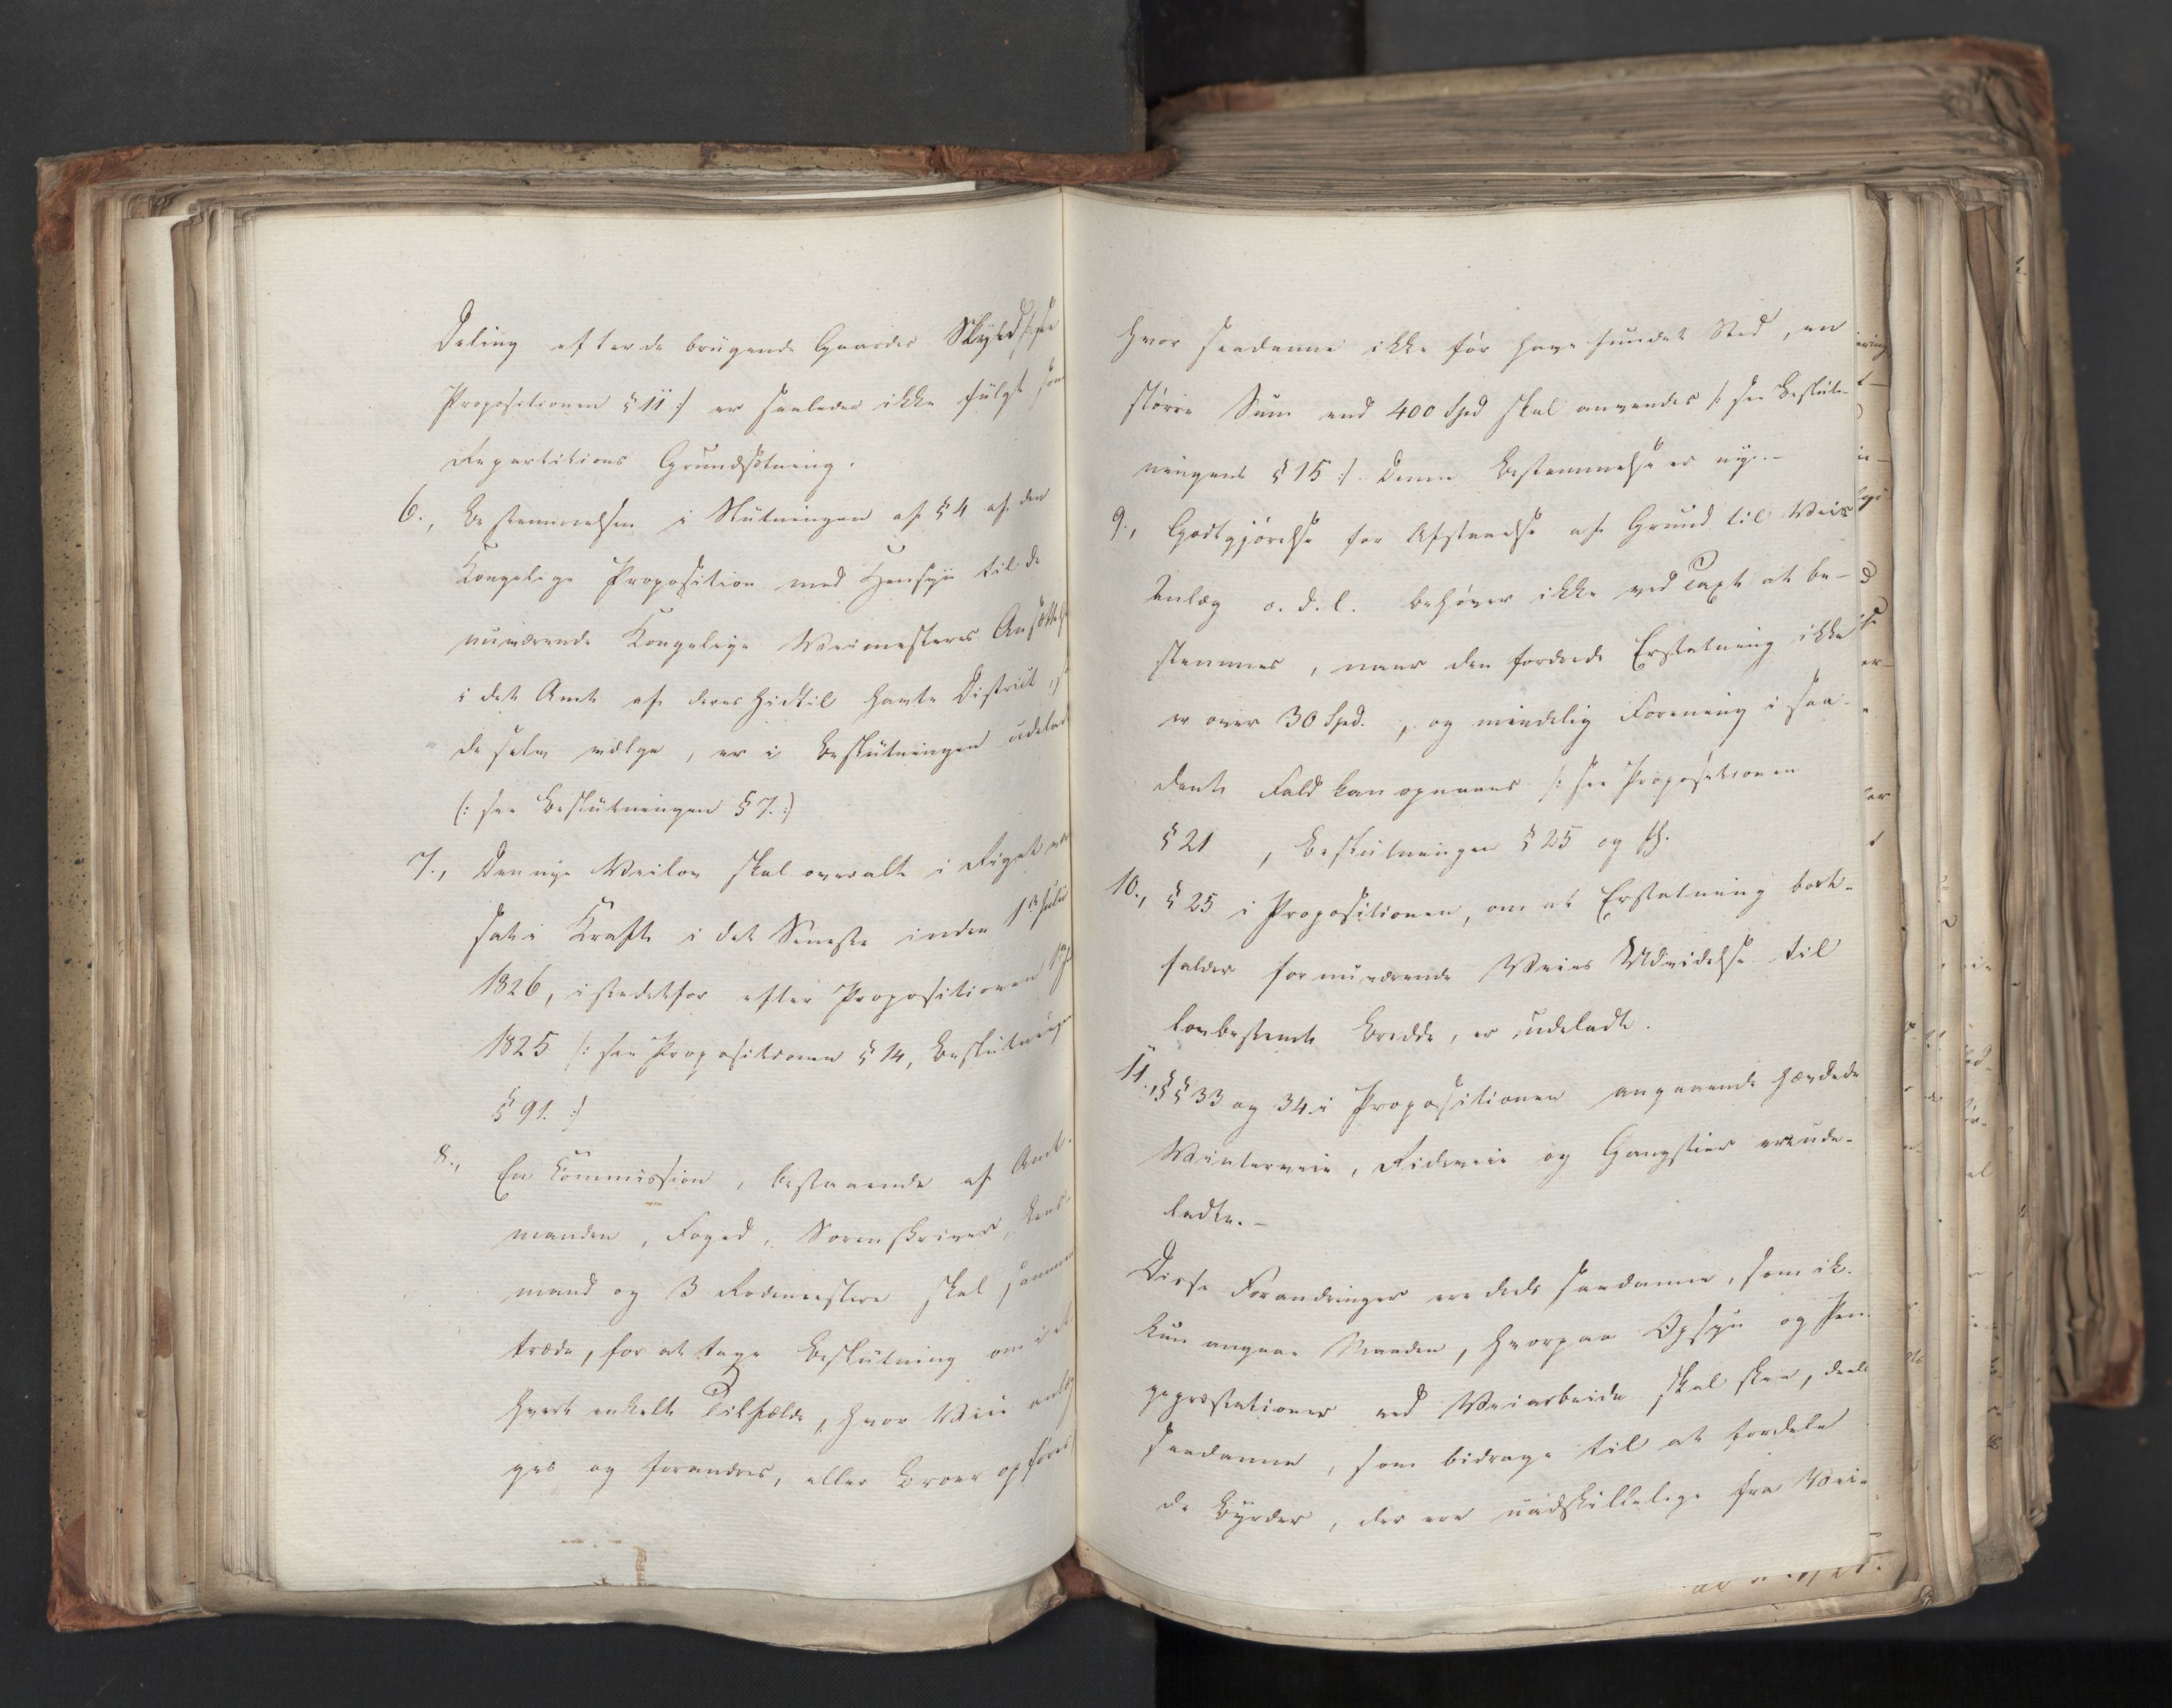 Deling efter de brugende Gaardes Skyld /: see
Propositionen § 11 :/ er saaledes ikke fulgt som
Repartitions Grundsætning.
6., Bestemmelsen i Slutningen af § 4 af den
Kongelige Proposition med Hensyn til de
nuværende Kongelige Veimesteres Ansættelse
i det Amt af deres hidtil havte District,
de selv vælge, er i Beslutningen udeladt
(: see Beslutningen § 7. :)
7., Den nye Veilov skal overalt i Riget være
sat i Kraft i det Seneste inden 1ste Juli
1826, istedetfor efter Propositionen
1825 /: see Propositionen § 14, Beslutningen
§ 91. :/
8., En Commission, bestaaende af Amt-
manden, Foged, Sorenskriver, Lens-
mand og 3 Rodemestere skal sammen
træde, for at tage Beslutning om i et-
hvert enkelt Tilfælde, hvor Veie anlæg-
ges og forandres, eller Broer opføres
hvor saadanne ikke før have fundet Sted, en
større Sum end 400 Spd skal anvendes /: see Beslut-
ningens § 15 :/. Denne Bestemmelse er ny. –
9., Godtgjørelse for Afstaaelse af Grund til Veies
Anlæg o. d. l. behøver ikke ved Taxt at be-
stemmes, naar den fordrede Erstatning ikke
er over 30 Spd., og mindelig Forening i saa-
dant Fald kan opnaaes /: see Propositionen
§ 21, Beslutningen § 25 og
10., § 25 i Propositionen, om at Erstatning bort-
falder for nuværende Veies Udvidelse til
lovbestemt Bredde, er udeladt.
11., §§ 33 og 34 i Propositionen angaaende hævdede
Vinterveie, Rideveie og Gangstier ere ude-
ladte. –
Disse Forandringer ere deels saadanne, som ik-
kun angaae Maaden, hvorpaa Opsyn og Pen-
gepræstationer ved Veiarbeide skal skee, deels
saadanne, som bidrage til at fordele
de Byrder, der ere uadskillelige fra Vei-